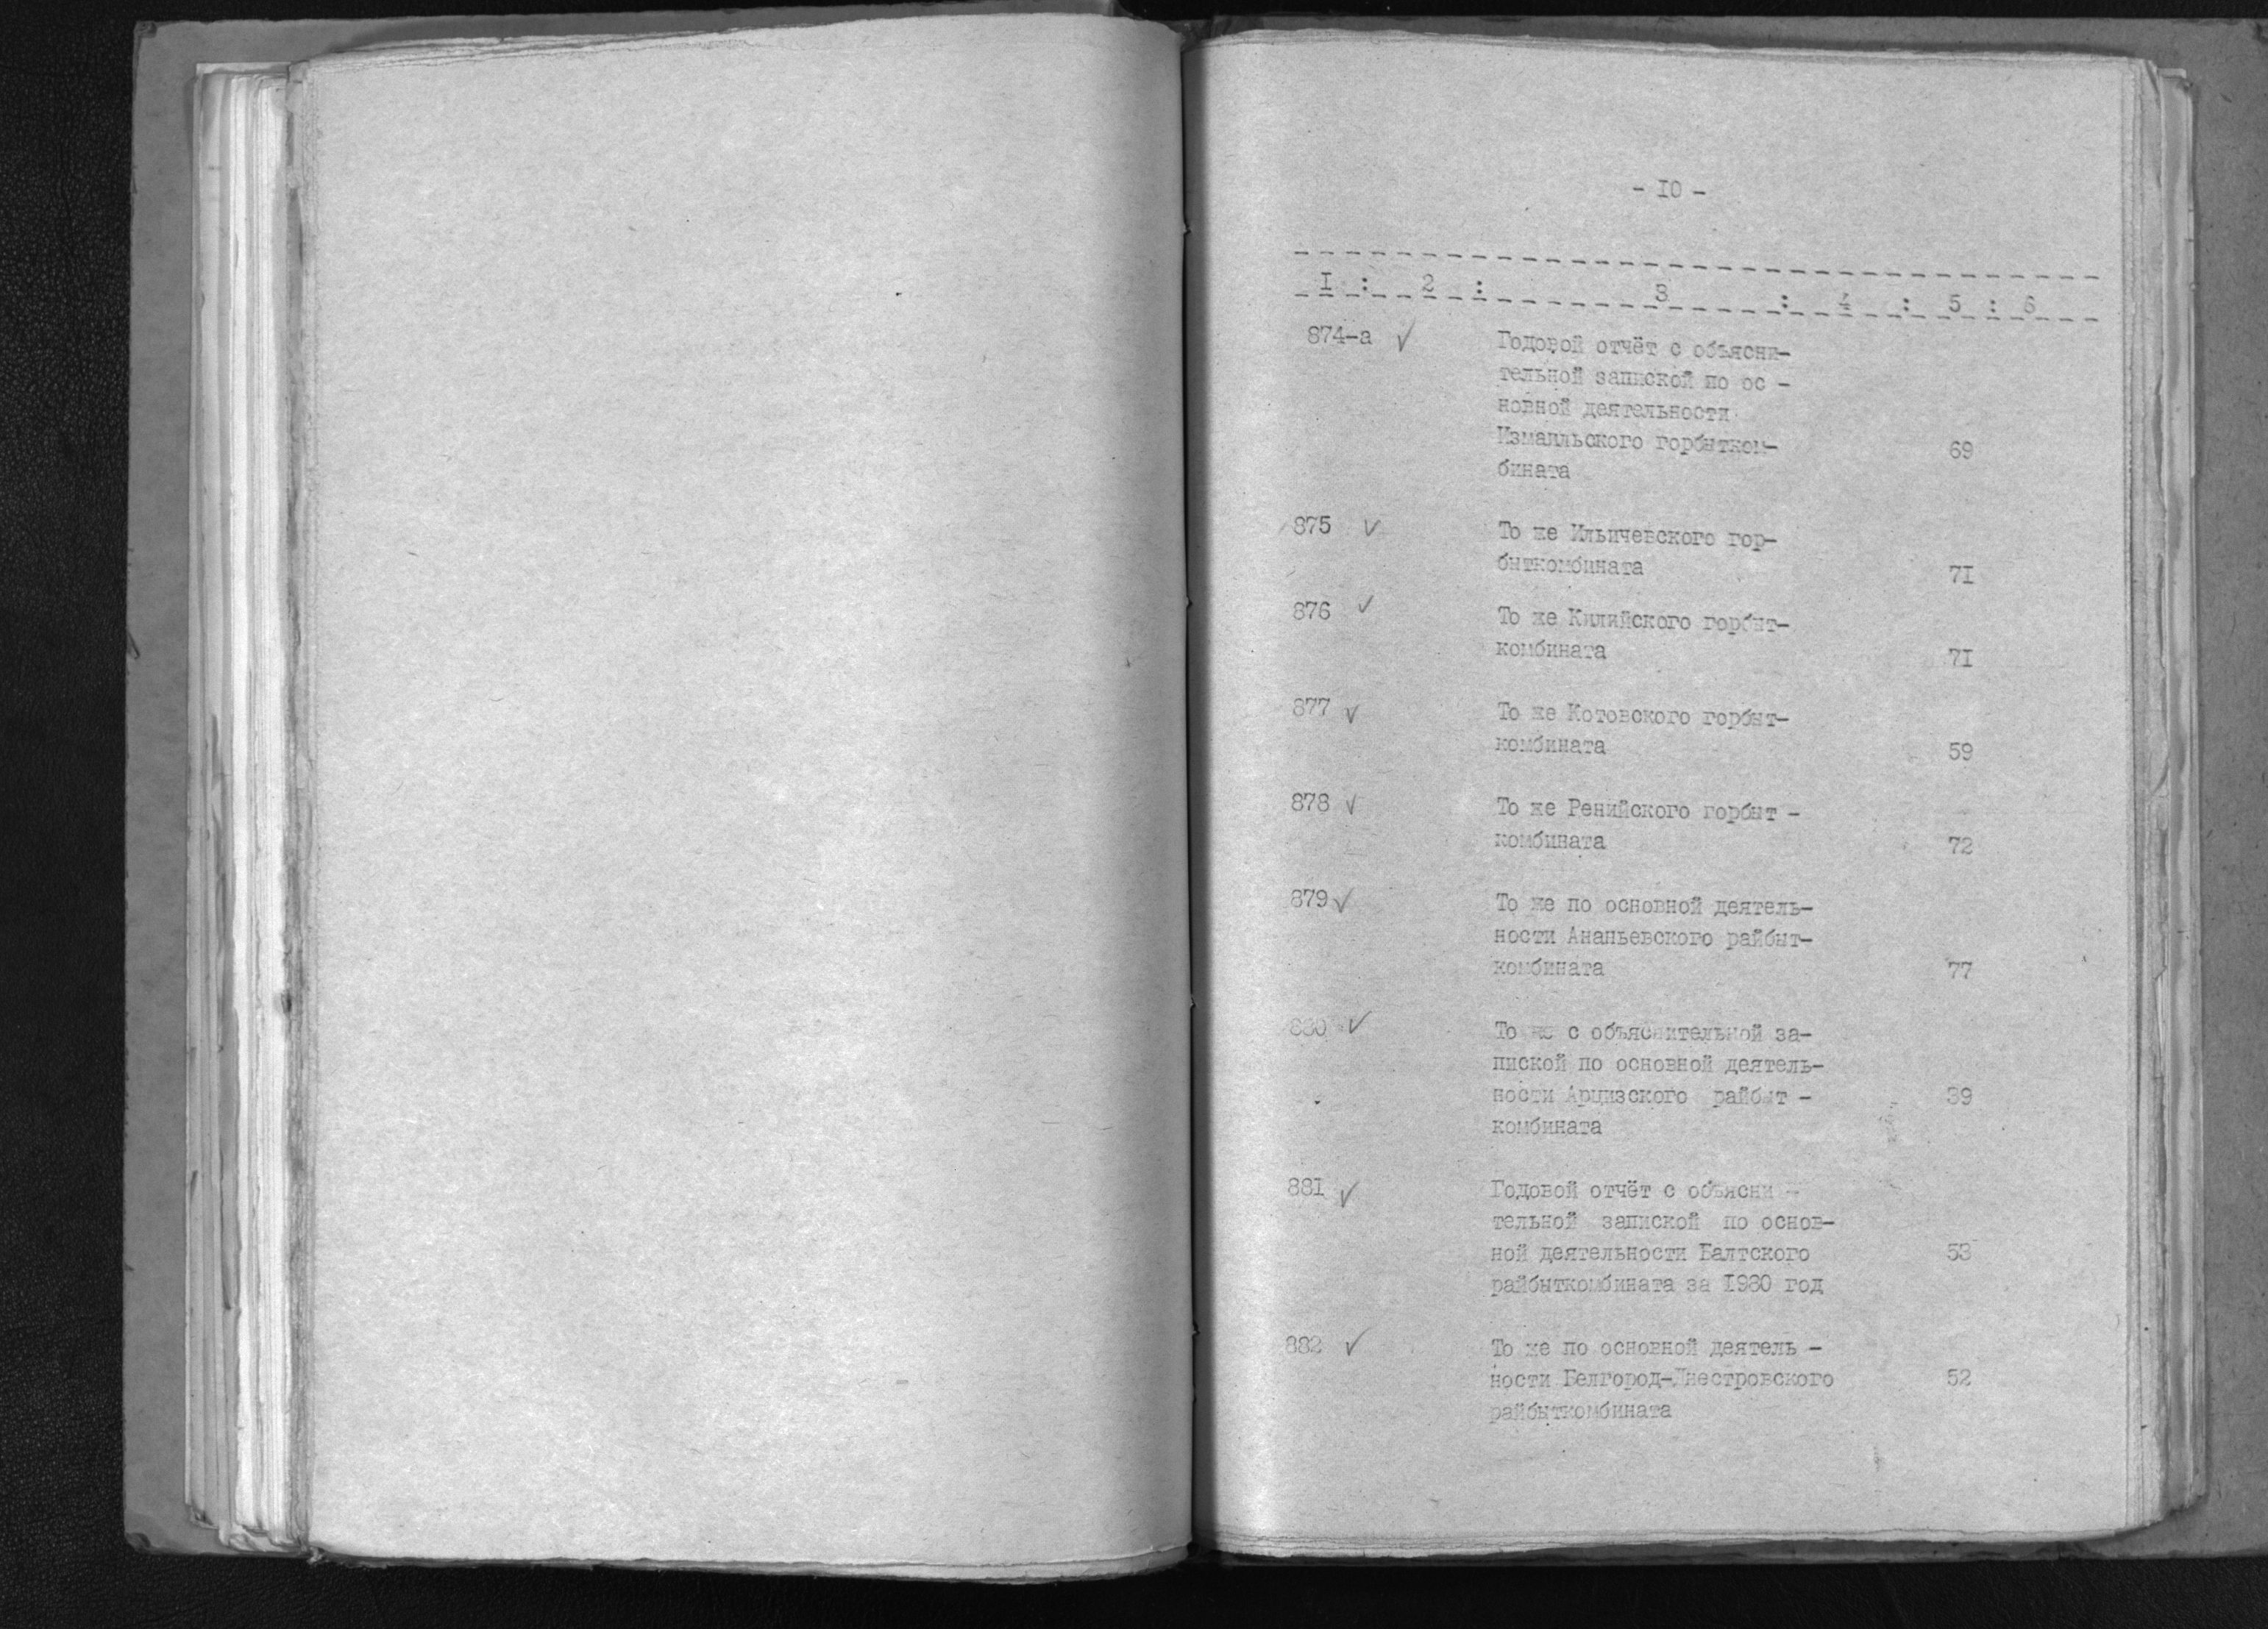 - I0 -
I : 2 : 3 : 4 : 5 : 6
874-а ✓ Годовой отчёт с объясни-
тельной запиской по ос -
новной деятельности
Измаильского горбытком- 69
бината
875 ✓ То же Ильичевского гор-
быткомбината 7I
876 ✓ То же Килийского горбыт-
комбината 7I
877 ✓ То же Котовского горбыт-
комбината 59
878 ✓ То же Ренийского горбыт -
комбината 72
879 ✓ То же по основной деятель-
ности Ананьевского райбыт-
комбината 77
880 ✓ То же с объяснительной за-
пиской по основной деятель-
ности Арцизского райбыт - 39
комбината
88I ✓ Годовой отчёт с объясни -
тельной запиской по основ-
ной деятельности Балтского 53
райбыткомбината за I980 год
882 ✓ То же по основной деятель -
ности Белгород-Днестровского 52
райбыткомбината